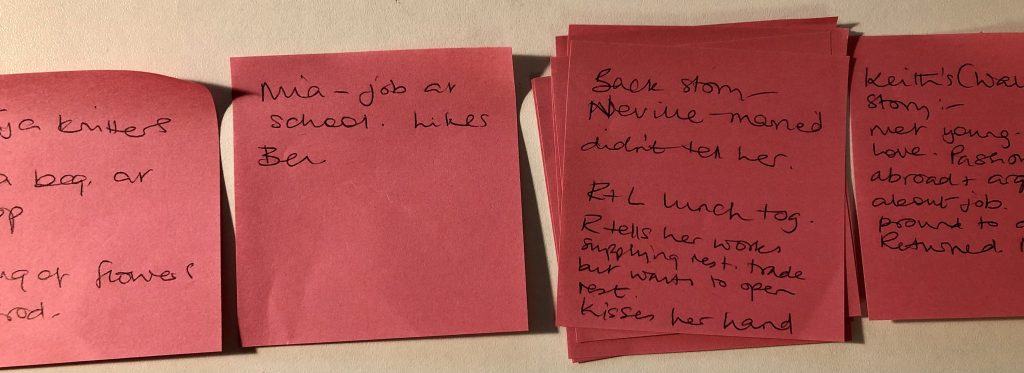 knitters
a beg. at
of flowers
Mia - job at
school. Likes
Ben
Back story -
Neville - married
didn't tell her.
R+L lunch tog.
R tells her works
supplying rest. trade
but wants to open
rest.
Kisses her hand
Keith's (Wa
story :-
met young -
love. Passio
abroad + arg
about job.
pround to
Returned.